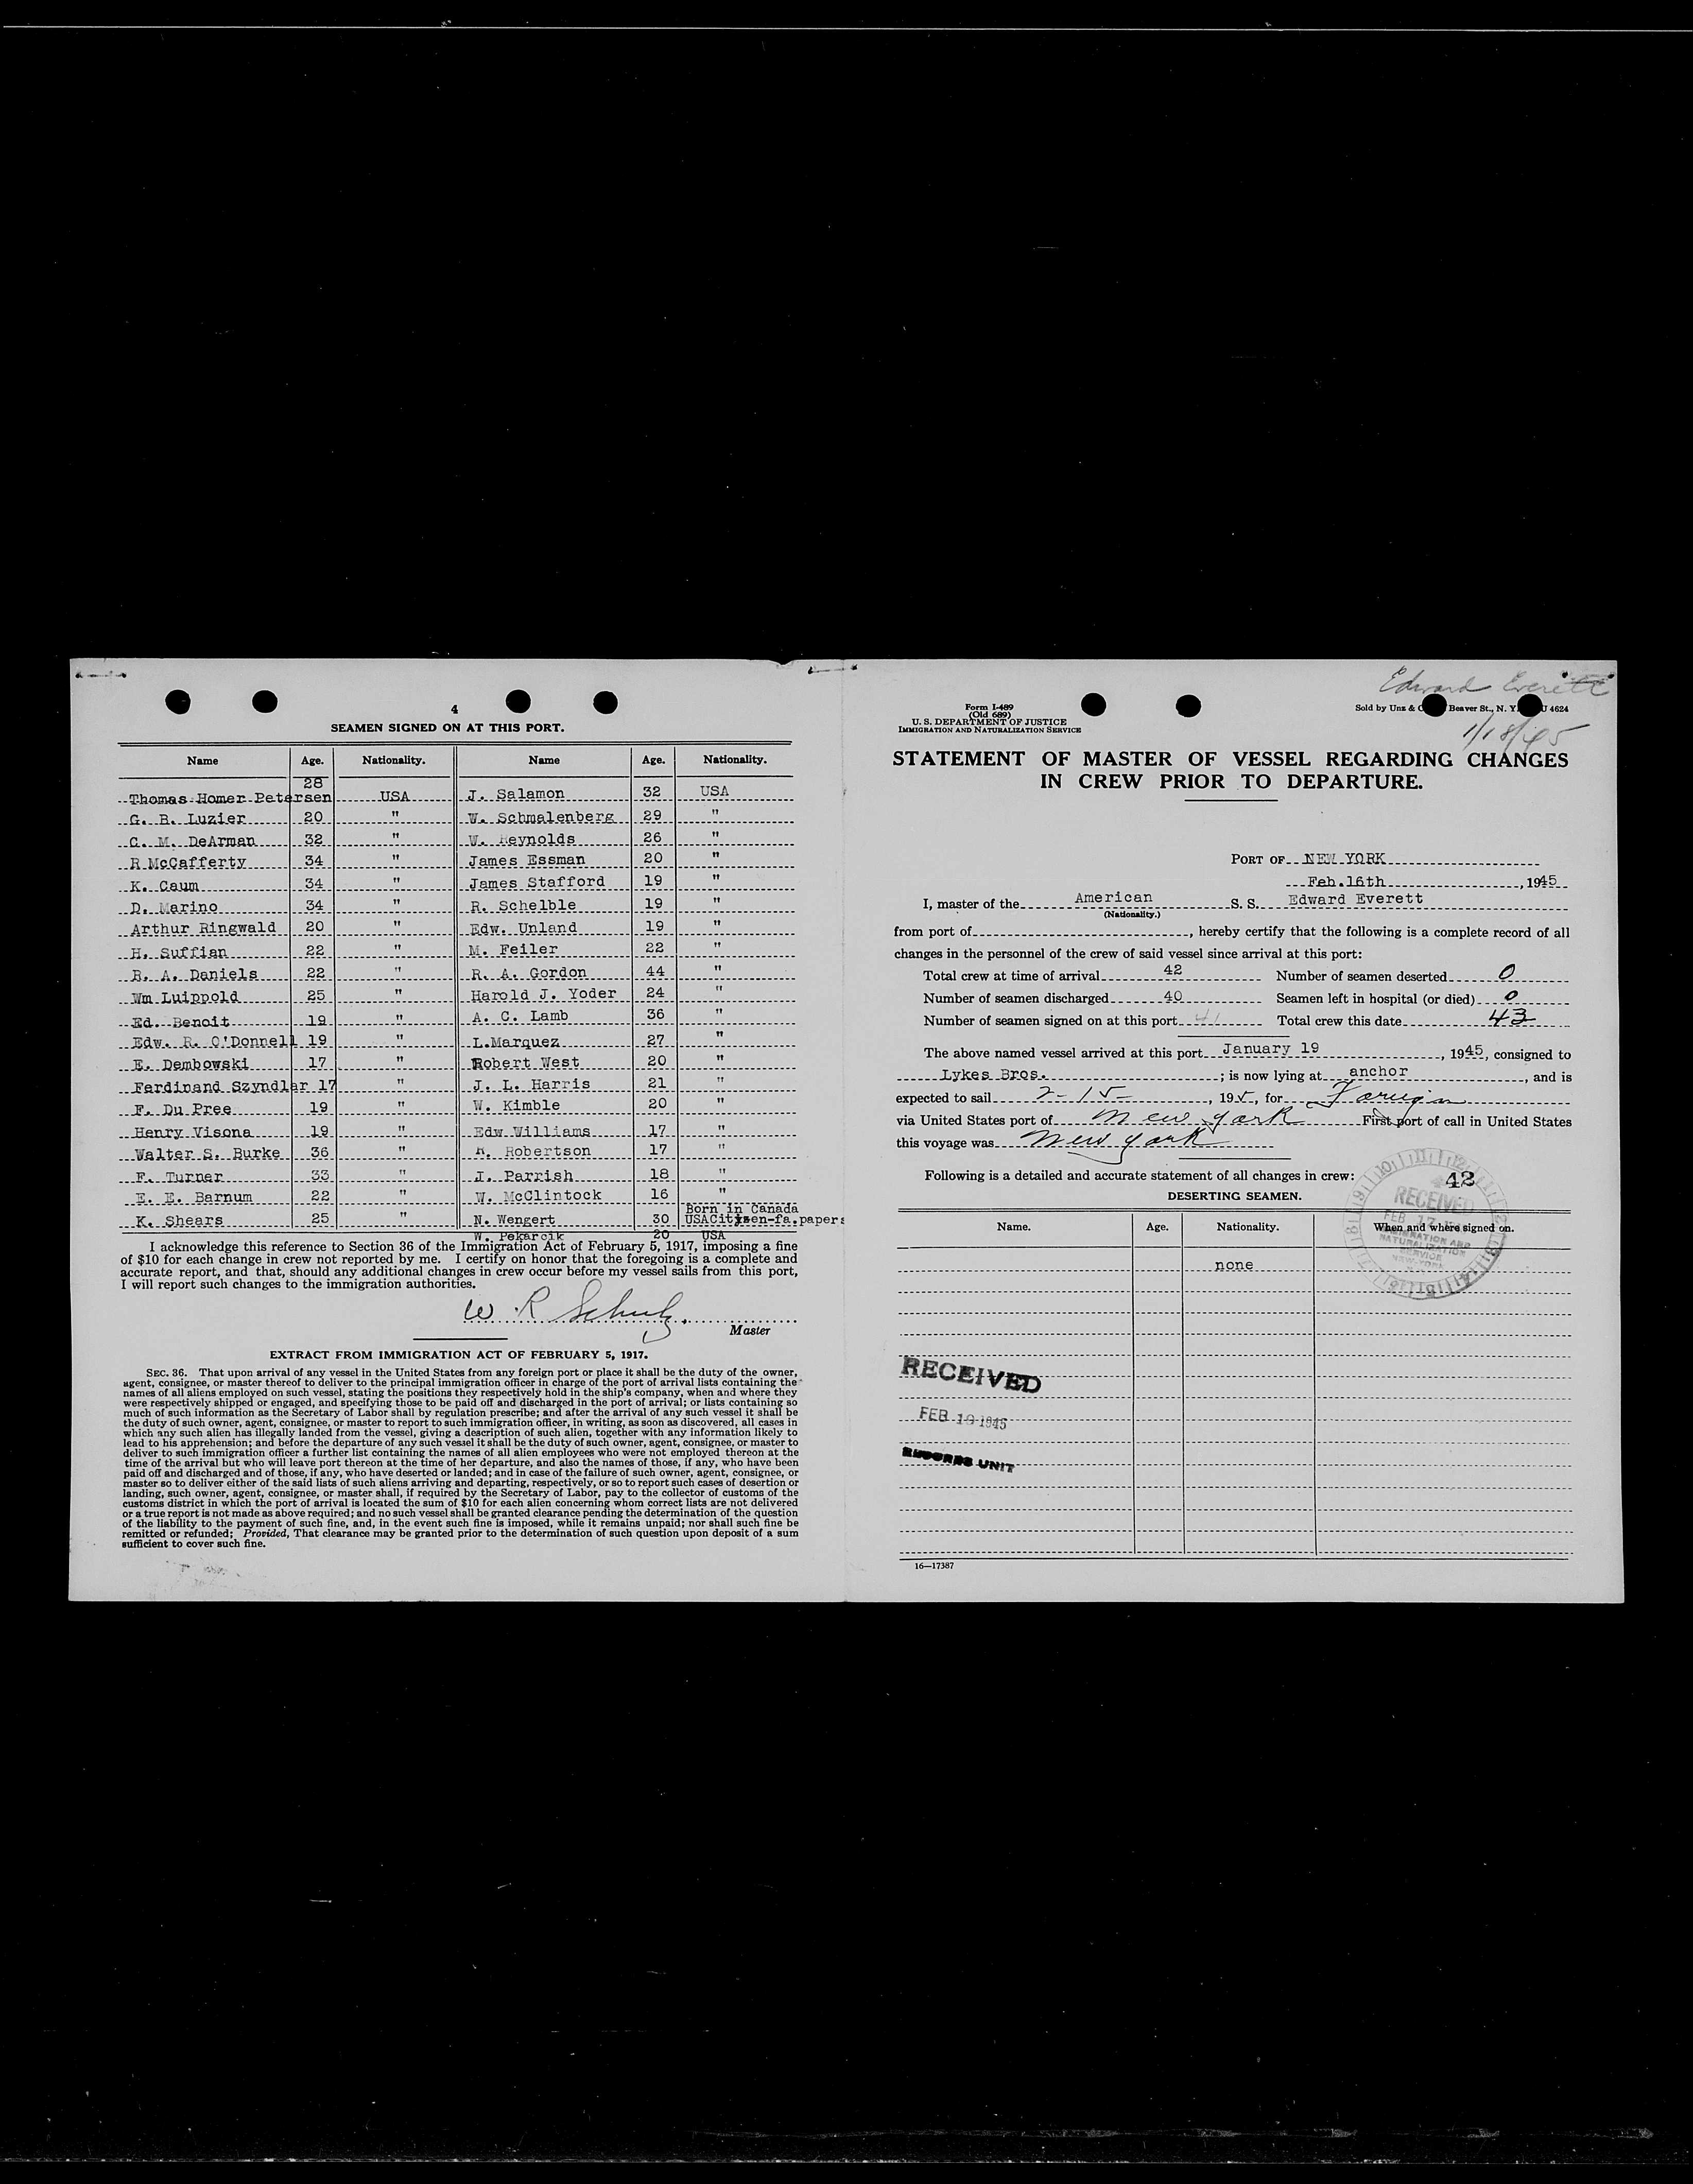 4
SEAMEN SIGNED ON AT THIS PORT.
Name Age. Nationality. Name Age. Nationality.
Thomas Homer Petersen 28 USA J. Salamon 32 USA
G. R. Luzier 20 " W. Schmalenberg 29 "
C. M. DeArman 32 " W. Reynolds 26 "
R McCafferty 34 " James Essman 20 "
K. Caum 34 " James Stafford 19 "
D. Marino 34 " R. Schelble 19 "
Arthur Ringwald 20 " Edw. Unland 19 "
H. Suffian 22 " M. Feiler 22 "
B. A. Daniels 22 " R. A. Gordon 44 "
Wm Luippold 25 " Harold J. Yoder 24 "
Ed. Benoit 19 " A. C. Lamb 36 "
Edw. R. O'Donnell 19 " L.Marquez 27 "
E. Dembowski 17 " Robert West 20 "
Ferdinand Szyndlar 17 " J. L. Harris 21 "
F. Du Pree 19 " W. Kimble 20 "
Henry Visona 19 " Edw Williams 17 "
Walter S. Burke 36 " R. Robertson 17 "
F. Turner 33 " J. Parrish 18 "
E. E. Barnum 22 " W. McClintock 16 "
Born in Canada
K. Shears 25 " N. Wengert 30 USACityzen-fa.papers
W. Pekarcik 20 USA
I acknowledge this reference to Section 36 of the Immigration Act of February 5, 1917, imposing a fine
of $10 for each change in crew not reported by me. I certify on honor that the foregoing is a complete and
accurate report, and that, should any additional changes in crew occur before my vessel sails from this port,
I will report such changes to the immigration authorities.
W. R Schulz.
Master
EXTRACT FROM IMMIGRATION ACT OF FEBRUARY 5, 1917.
SEC. 36. That upon arrival of any vessel in the United States from any foreign port or place it shall be the duty of the owner,
agent, consignee, or master thereof to deliver to the principal immigration officer in charge of the port of arrival lists containing the
names of all aliens employed on such vessel, stating the positions they respectively hold in the ship's company, when and where they
were respectively shipped or engaged, and specifying those to be paid off and discharged in the port of arrival; or lists containing so
much of such information as the Secretary of Labor shall by regulation prescribe; and after the arrival of any such vessel it shall be
the duty of such owner, agent, consignee, or master to report to such immigration officer, in writing, as soon as discovered, all cases in
which any such alien has illegally landed from the vessel, giving a description of such alien, together with any information likely to
lead to his apprehension; and before the departure of any such vessel it shall be the duty of such owner, agent, consignee, or master to
deliver to such immigration officer a further list containing the names of all alien employees who were not employed thereon at the
time of the arrival but who will leave port thereon at the time of her departure, and also the names of those, if any, who have been
paid off and discharged and of those, if any, who have deserted or landed; and in case of the failure of such owner, agent, consignee, or
master so to deliver either of the said lists of such aliens arriving and departing, respectively, or so to report such cases of desertion or
landing, such owner, agent, consignee, or master shall, if required by the Secretary of Labor, pay to the collector of customs of the
customs district in which the port of arrival is located the sum of $10 for each alien concerning whom correct lists are not delivered
or a true report is not made as above required; and no such vessel shall be granted clearance pending the determination of the question
of the liability to the payment of such fine, and, in the event such fine is imposed, while it remains unpaid; nor shall such fine be
remitted or refunded; Provided, That clearance may be granted prior to the determination of such question upon deposit of a sum
sufficient to cover such fine.
Edward Everett
Form I-489
(Old 689)
U. S. DEPARTMENT OF JUSTICE
IMMIGRATION AND NATURALIZATION SERVICE
Sold by Unz & Beaver St., N. Y. 4624
1/18/45
STATEMENT OF MASTER OF VESSEL REGARDING CHANGES
IN CREW PRIOR TO DEPARTURE.
PORT OF NEW YORK
Feb.16th, 1945
I, master of the American S. S. Edward Everett
(Nationality.)
from port of , hereby certify that the following is a complete record of all
changes in the personnel of the crew of said vessel since arrival at this port:
Total crew at time of arrival 42 Number of seamen deserted 0
Number of seamen discharged 40 Seamen left in hospital (or died) 0
Number of seamen signed on at this port 41 Total crew this date 43
The above named vessel arrived at this port January 19, 1945, consigned to
Lykes Bros. ; is now lying at anchor , and is
expected to sail 2-15- , 195, for Foruign
via United States port of New York First port of call in United States
this voyage was New York
Following is a detailed and accurate statement of all changes in crew: 42
DESERTING SEAMEN.
Name. Age. Nationality. When and where signed on.
none
RECEIVED
FEB 17
IMMIGRATION AND
NATURALIZATION
SERVICE
NEW YORK
RECEIVED
FEB 19 1945
RECORDS UNIT
16—17387